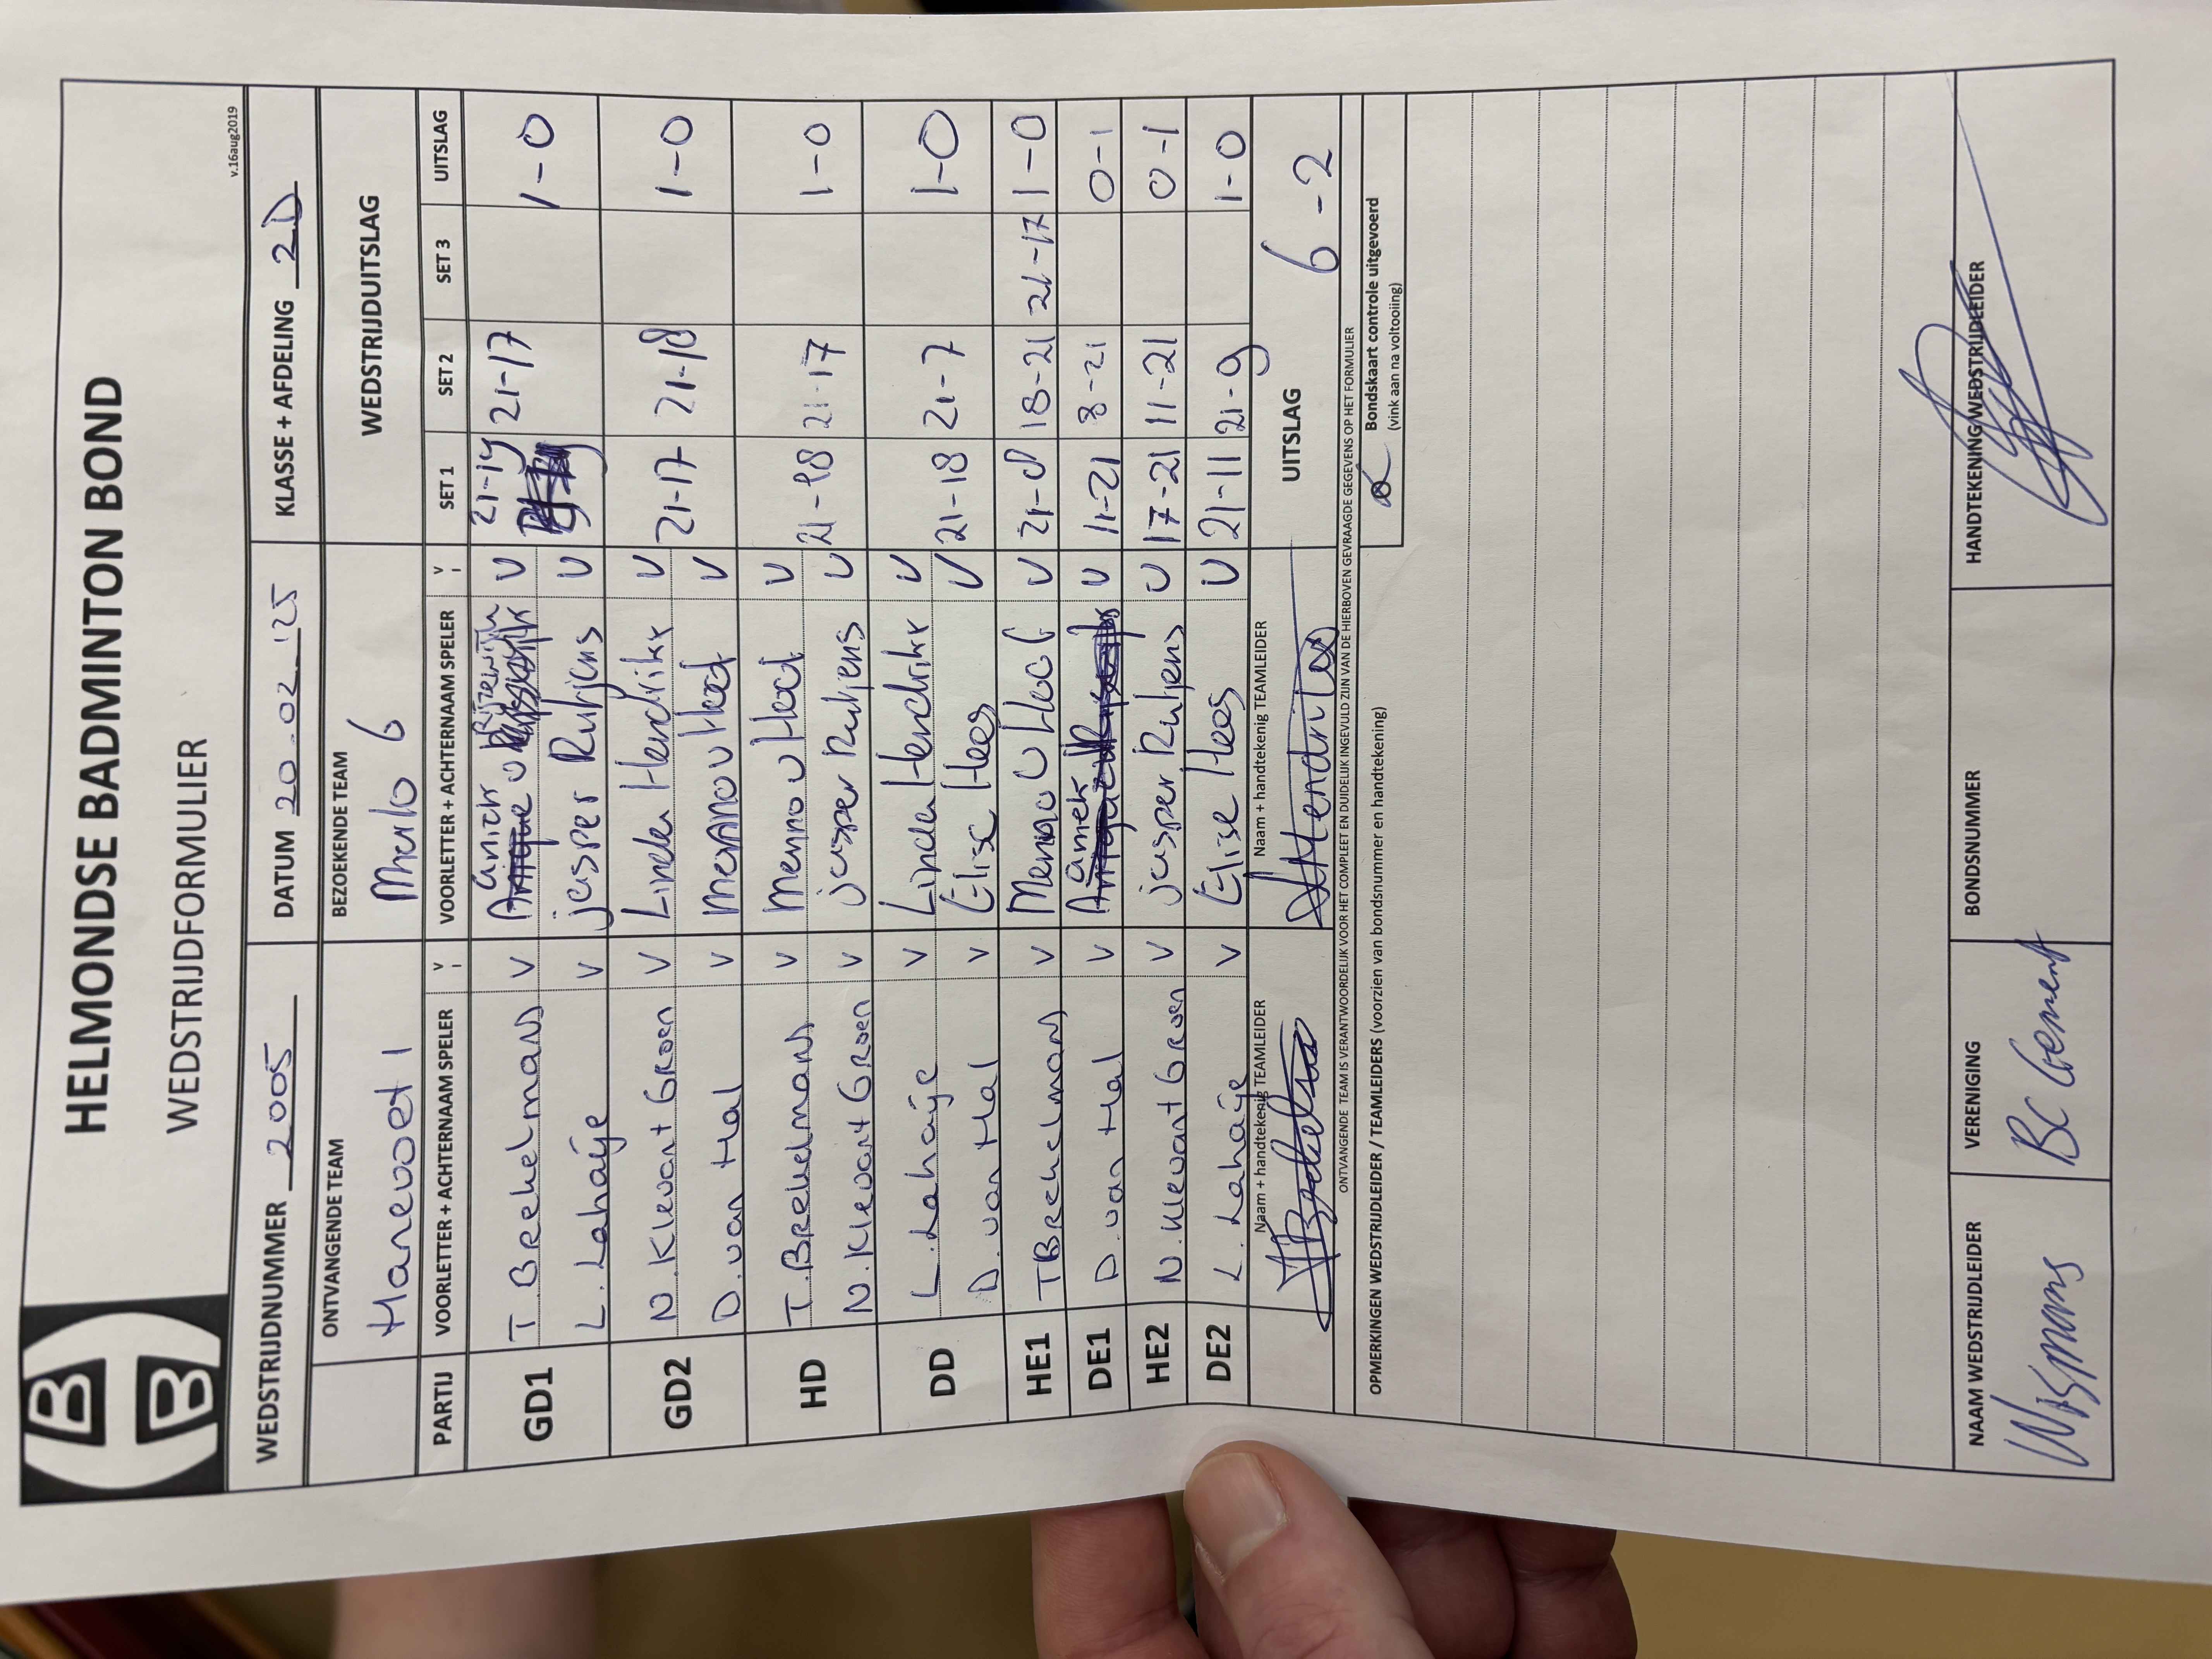 HELMONDSE BADMINTON BOND
WEDSTRIJDFORMULIER
v.16aug2019
WEDSTRIJDNUMMER 2005 DATUM 20.02.'25 KLASSE + AFDELING 2D
ONTVANGENDE TEAM BEZOEKENDE TEAM WEDSTRIJDUITSLAG
Hanevoet 1 Mierlo 6
PARTIJ VOORLETTER + ACHTERNAAM SPELER V VOORLETTER + ACHTERNAAM SPELER V SET 1 SET 2 SET 3 UITSLAG
GD1 T. Brekelmans V Anick V 21-14 21-17 1-0
L. Lahaije V jasper Rutjens V
GD2 N. Klevant Groen V Linda Hendrikx V 21-17 21-18 1-0
D. van Hal V menno v Hood V
HD T. Brekelmans V menno v Hood V 21-18 21-17 1-0
N. Klevant Groen V jasper Rutjens V
DD L. Lahaije V Linda Hendrikx V 21-18 21-7 1-0
D. van Hal V Elise Hees V
HE1 T Brekelmans V Menno v Hood V 21-8 18-21 21-17 1-0
DE1 D. van Hal V V 11-21 8-21 0-1
HE2 N. Klevant Groen V jasper Rutjens V 17-21 11-21 0-1
DE2 L. Lahaije V Elise Hees V 21-11 21-9 1-0
Naam + handtekenig TEAMLEIDER Naam + handtekenig TEAMLEIDER UITSLAG 6-2
Hendrikx
ONTVANGENDE TEAM IS VERANTWOORDELIJK VOOR HET COMPLEET EN DUIDELIJK INGEVULD ZIJN VAN DE HIERBOVEN GEVRAAGDE GEGEVENS OP HET FORMULIER
OPMERKINGEN WEDSTRIJDLEIDER / TEAMLEIDERS (voorzien van bondsnummer en handtekening)
Bondskaart controle uitgevoerd
(vink aan na voltooiing)
NAAM WEDSTRIJDLEIDER VERENIGING BONDSNUMMER HANDTEKENING WEDSTRIJDLEIDER
BC Gemert